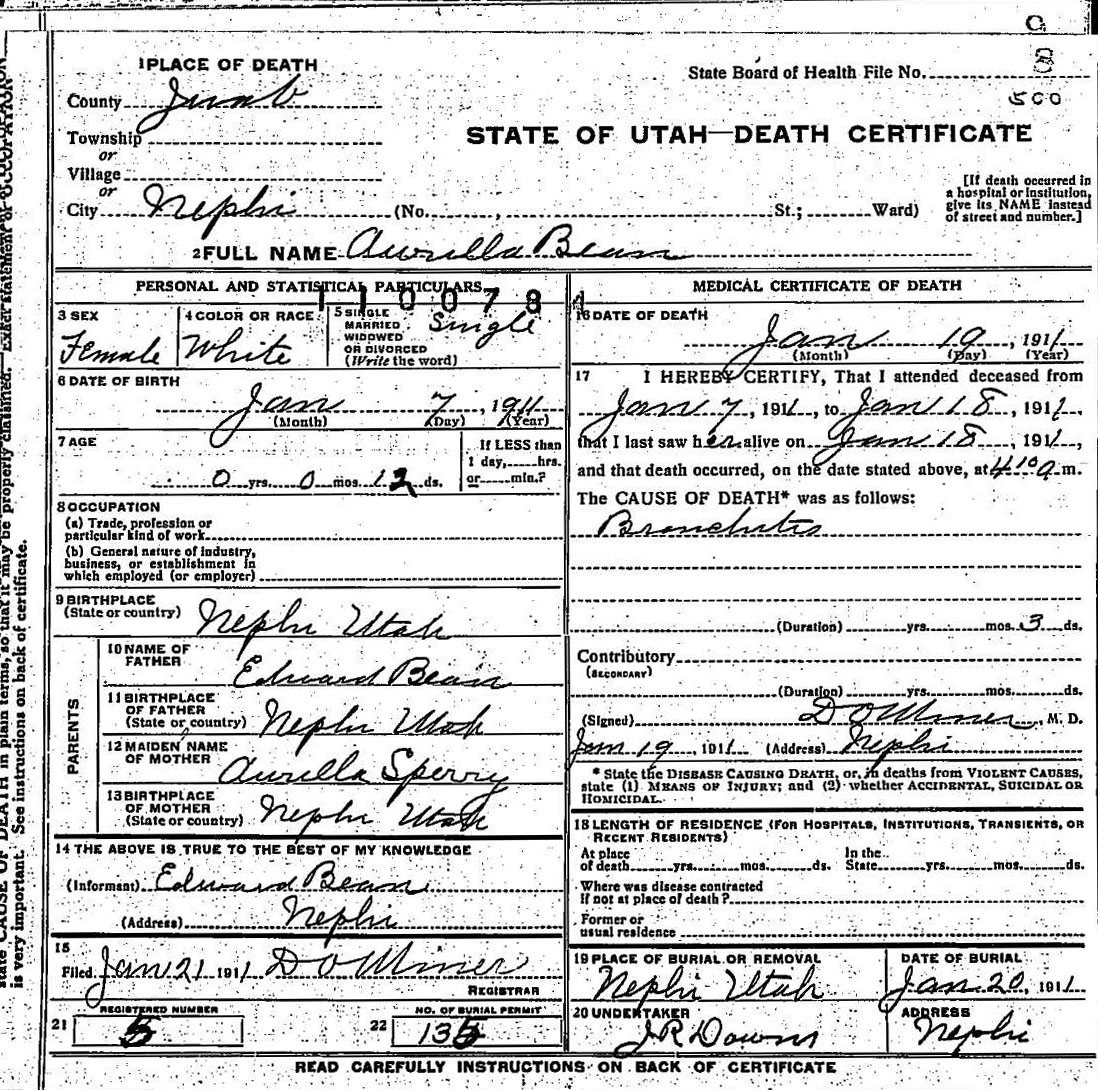 1 PLACE OF DEATH
County Juab
State Board of Health File No.
8
500
Township
or
Village
or
City Nephi (No. , St.; Ward)
STATE OF UTAH—DEATH CERTIFICATE
[If death occurred in
a hospital or institution,
give its NAME instead
of street and number.]
2 FULL NAME Aurilla Bean
1100784
PERSONAL AND STATISTICAL PARTICULARS
3 SEX
Female
4 COLOR OR RACE
White
5 SINGLE
MARRIED
WIDOWED
OR DIVORCED
(Write the word)
Single
6 DATE OF BIRTH
Jan 7, 1911
(Month) (Day) (Year)
7 AGE
0 yrs. 0 mos. 12 ds.
If LESS than
1 day, hrs.
or min.?
8 OCCUPATION
(a) Trade, profession or
particular kind of work
(b) General nature of industry,
business, or establishment in
which employed (or employer)
9 BIRTHPLACE
(State or country) Nephi Utah
PARENTS
10 NAME OF
FATHER Edward Bean
11 BIRTHPLACE
OF FATHER
(State or country) Nephi Utah
12 MAIDEN NAME
OF MOTHER Aurilla Sperry
13 BIRTHPLACE
OF MOTHER
(State or country) Nephi Utah
14 THE ABOVE IS TRUE TO THE BEST OF MY KNOWLEDGE
(Informant) Edward Bean
(Address) Nephi
15
Filed Jan 21 1911 D O Miner
REGISTRAR
21 REGISTERED NUMBER
5
22 NO. OF BURIAL PERMIT
135
MEDICAL CERTIFICATE OF DEATH
16 DATE OF DEATH
Jan 19, 1911
(Month) (Day) (Year)
17 I HEREBY CERTIFY, That I attended deceased from
Jan 7, 1911, to Jan 18, 1911,
that I last saw her alive on Jan 18, 1911,
and that death occurred, on the date stated above, at 4 10 a m.
The CAUSE OF DEATH* was as follows:
Bronchitis
(Duration) yrs. mos. 3 ds.
Contributory
(SECONDARY)
(Duration) yrs. mos. ds.
(Signed) D O Miner, M. D.
Jan 19, 1911 (Address) Nephi
* State the DISEASE CAUSING DEATH, or, in deaths from VIOLENT CAUSES,
state (1) MEANS OF INJURY; and (2) whether ACCIDENTAL, SUICIDAL OR
HOMICIDAL.
18 LENGTH OF RESIDENCE (FOR HOSPITALS, INSTITUTIONS, TRANSIENTS, OR
RECENT RESIDENTS)
At place
of death yrs. mos. ds.
In the
State yrs. mos. ds.
Where was disease contracted
If not at place of death?
Former or
usual residence
19 PLACE OF BURIAL OR REMOVAL
Nephi Utah
DATE OF BURIAL
Jan 20, 1911
20 UNDERTAKER
J R Downs
ADDRESS
Nephi
READ CAREFULLY INSTRUCTIONS ON BACK OF CERTIFICATE
state CAUSE OF DEATH in plain terms, so that it may be properly classified. Exact statement of OCCUPATION
is very important. See instructions on back of certificate.